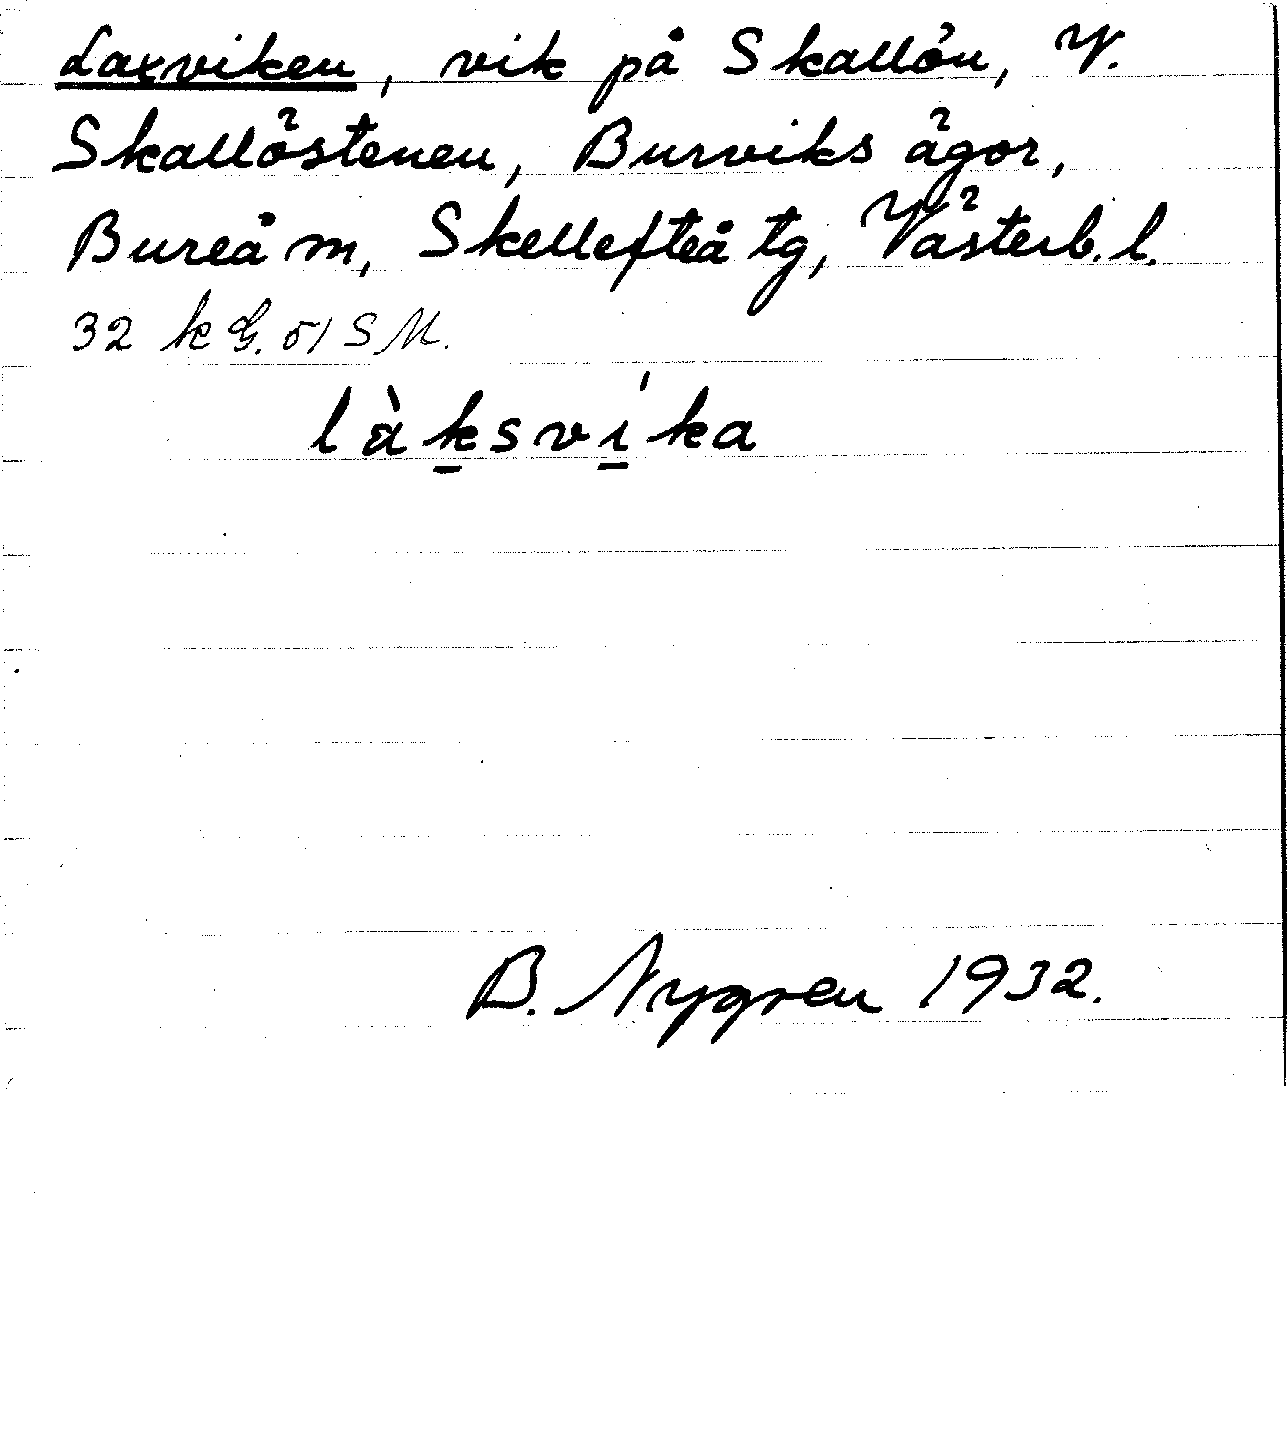 Laxviken, vik på Skallön, V.
Skallöstenen, Burviks ägor,
Bureå m, Skellefteå tg, Västerb. l.
32 k G. öl S M.
là̱ksví̱ka
B. Nygren 1932.